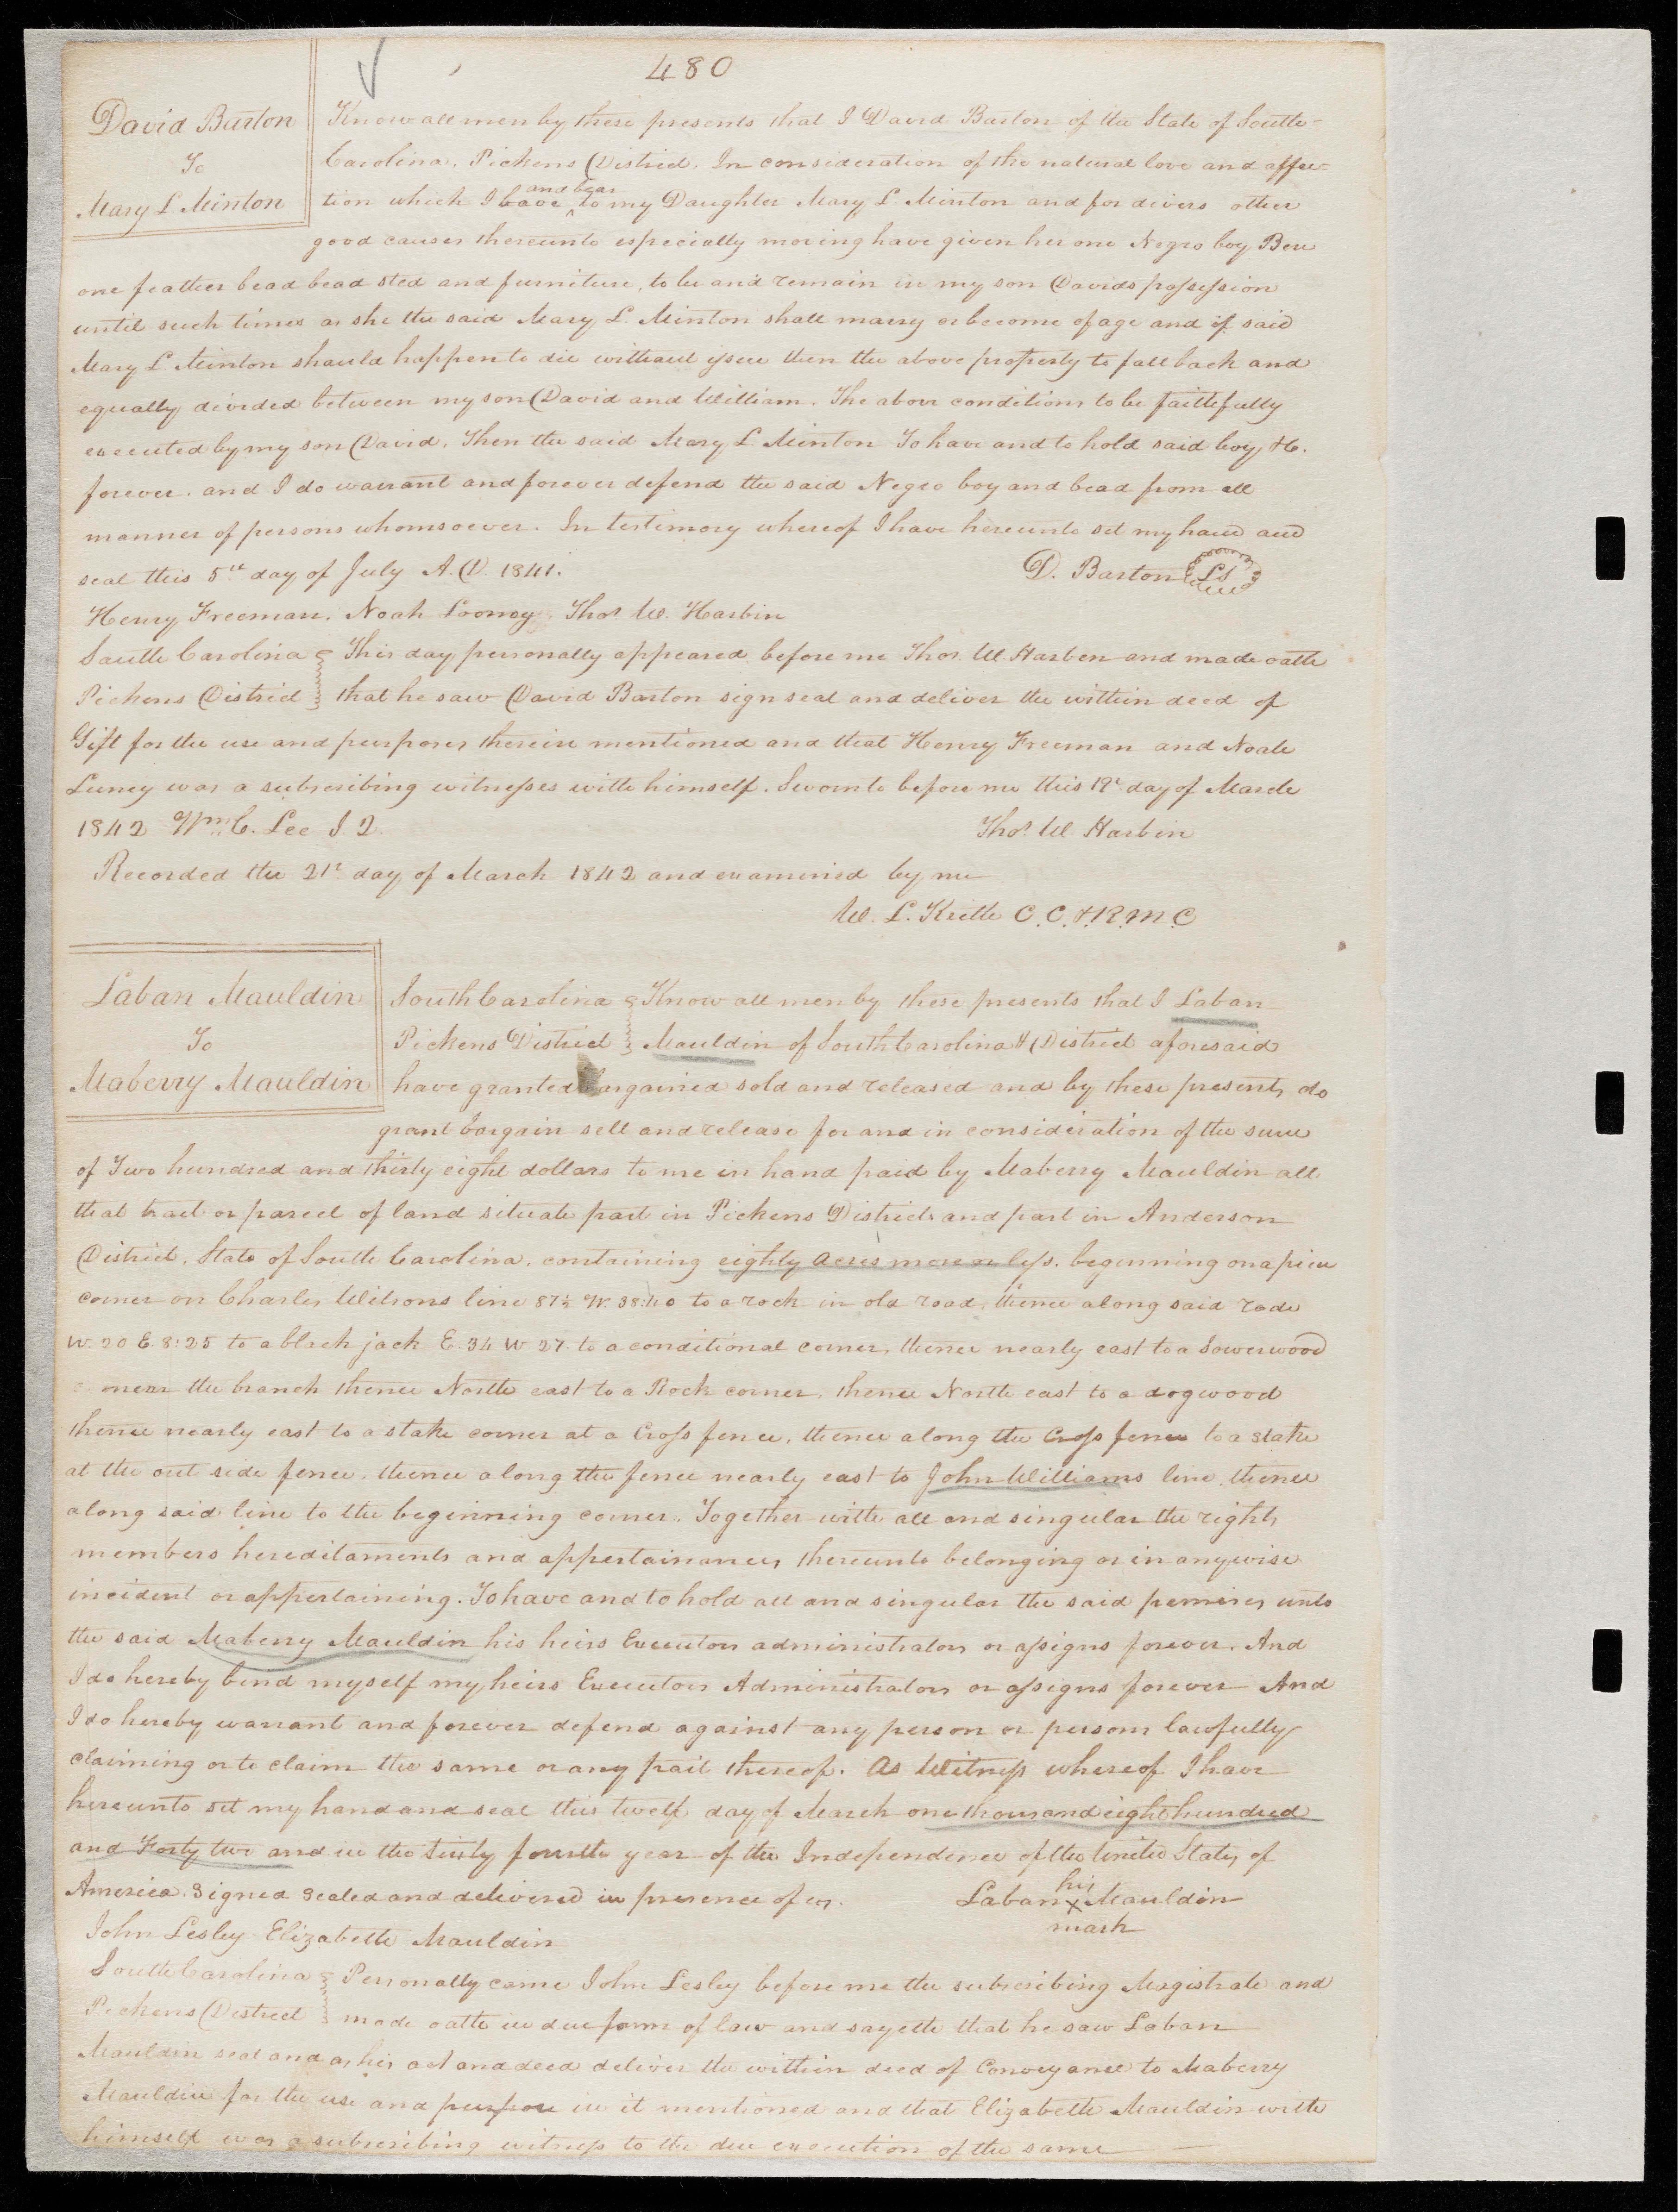 480
David Barton
To
Mary L Minton
Know all men by these presents that I David Barton of the State of South-
Carolina, Pickens District, In consideration of the natural love and affec-
tion which I have and bear to my Daughter Mary L. Minton and for divers other
good causes thereunto especially moving have given her one Negro boy Ben
one feather bead bead sted and furniture, to be and remain in my son Davids possession
until such times as she the said Mary L. Minton shall marry or become of age and if said
Mary L Minton should happen to die without issue then the above property to fall back and
equally divided between my son David and William. The above conditions to be faithfully
executed by my son David, Then the said Mary L. Minton To have and to hold said boy &c.
forever. and I do warrant and forever defend the said Negro boy and bead from all
manner of persons whomsoever. In testimony whereof I have hereunto set my hand and
seal this 5th day of July A.D. 1841.
D. Barton LS
Henry Freeman. Noah Looney. Thos W. Harbin
South Carolina This day personally appeared before me Thos. W. Harben and made oath
Pickens District that he saw David Barton sign seal and deliver the within deed of
Gift for the use and purposes therein mentioned and that Henry Freeman and Noah
Luney was a subscribing witnesses with himself. Sworn to before me this 19th day of March
1842 Wm C. Lee J Q
Thos. W Harbin
Recorded the 21st day of March 1842 and examined by me
W. L. Keith C. C. & R. M. C
Laban Mauldin
To
Maberry Mauldin
South Carolina Know all men by these presents that I Laban
Pickens District Mauldin of South Carolina & District aforesaid
have granted bargained sold and released and by these presents do
grant bargain sell and release for and in consideration of the sum
of Two hundred and thirty eight dollars to me in hand paid by Maberry Mauldin all
that tract or parcel of land situate part in Pickens District and part in Anderson
District, State of South Carolina, containing eighty acres more or less. beginning on a pine
corner on Charles Wilsons line 87½ W. 38:40 to a rock in old road, thence along said rode
W. 20 E. 8:25 to a black jack E. 34 W 27. to a conditional corner, thence nearly east to a Sowerwood
near the branch thence North east to a Rock corner, thence North east to a dogwood
thence nearly east to a stake corner at a Cross fence, thence along the Cross fence to a stake
at the out side fence, thence along the fence nearly east to John Williams line, thence
along said line to the beginning corner. Together with all and singular the rights
members hereditaments and appertainances thereunto belonging or in anywise
incident or appertaining. To have and to hold all and singular the said premises unto
the said Maberry Mauldin his heirs Executors administrators or assigns forever. And
I do hereby bind myself my heirs Executors Administrators or assigns forever And
I do hereby warrant and forever defend against any person or persons lawfully
claiming or to claim the same or any part thereof. As Witness whereof I have
hereunto set my hand and seal this twelf day of March one thousand eight hundred
and Forty two and in the sixty fourth year of the Independence of the United States of
America. Signed Sealed and delivered in presence of us.
his
Laban x Mauldin
mark
John Lesley Elizabeth Mauldin
South Carolina Personally came John Lesley before me the subscribing Magistrate and
Pickens District made oath in due form of law and sayeth that he saw Laban
Mauldin seal and as his act and deed deliver the within deed of Conveyance to Maberry
Mauldin for the use and purpose in it mentioned and that Elizabeth Mauldin with
himself was a subscribing witness to the due execution of the same